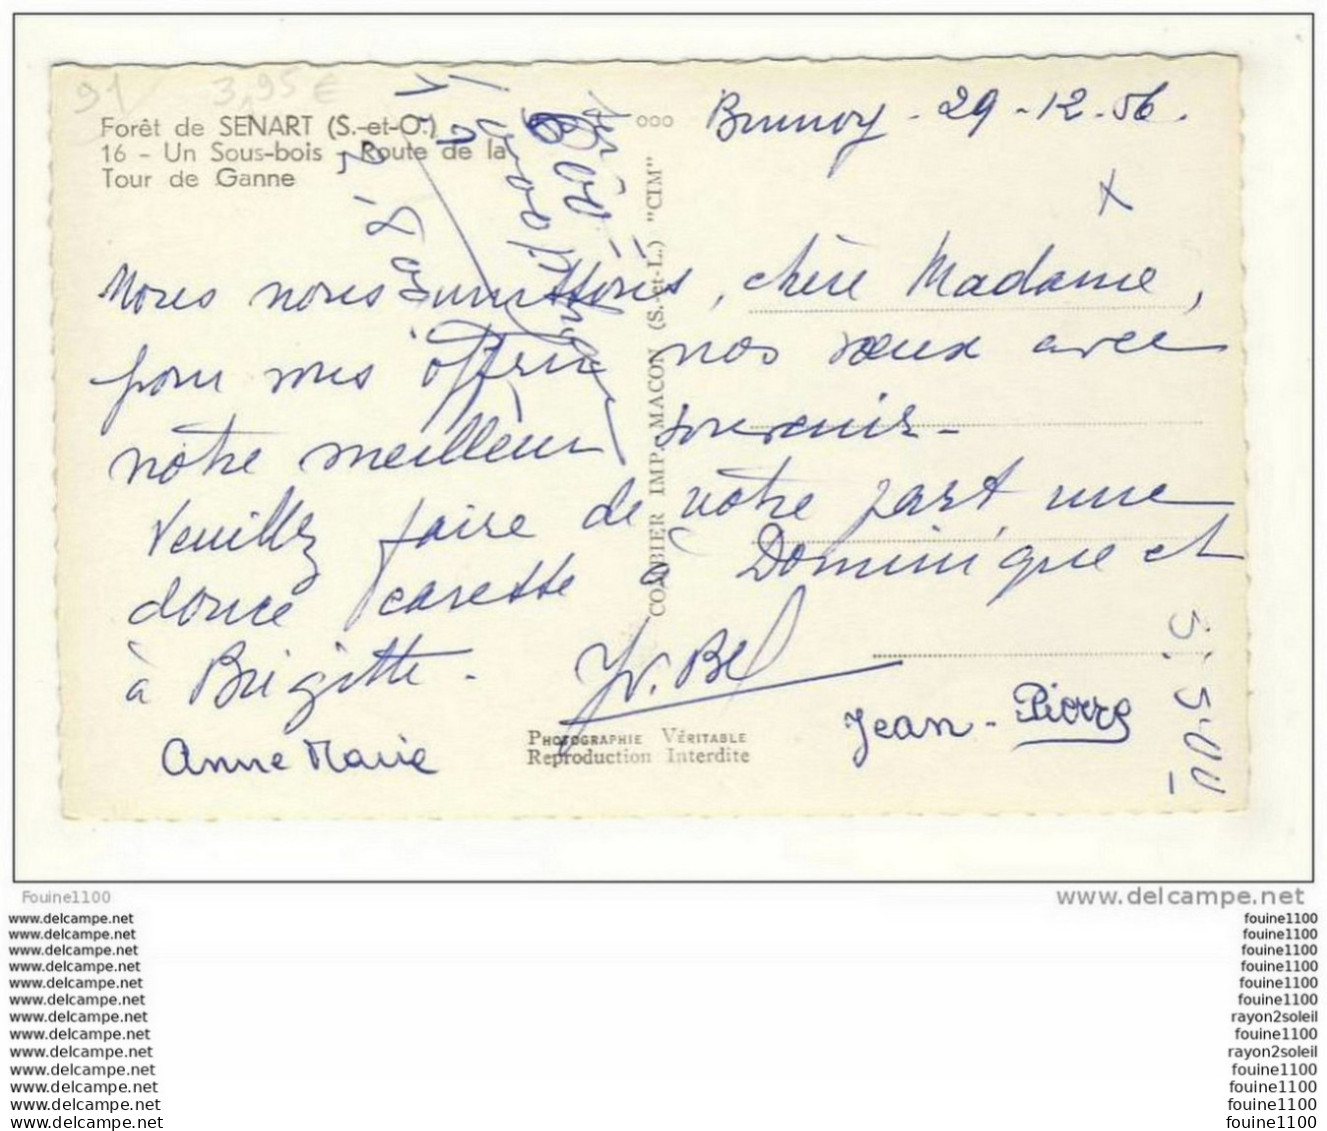 91
3,95 €
Forêt de SENART (S.-et-O.)
16 - Un Sous-bois - Route de la
Tour de Ganne
ooo
Brunoy - 29 - 12 - 56.
x
Nous nous unissons, chère Madame,
pour vous offrir nos vœux avec
notre meilleur souvenir -
Veuillez faire de votre part une
douce caresse à Dominique et
à Brigitte -
Yv. Bel
Anne Marie
Jean - Pierre
COMBIER IMP. MACON (S.-et-L.) "CIM"
PHOTOGRAPHIE VÉRITABLE
Reproduction Interdite
Fouine1100
www.delcampe.net
www.delcampe.net fouine1100
www.delcampe.net fouine1100
www.delcampe.net fouine1100
www.delcampe.net fouine1100
www.delcampe.net fouine1100
www.delcampe.net fouine1100
www.delcampe.net rayon2soleil
www.delcampe.net fouine1100
www.delcampe.net rayon2soleil
www.delcampe.net fouine1100
www.delcampe.net fouine1100
www.delcampe.net fouine1100
www.delcampe.net fouine1100